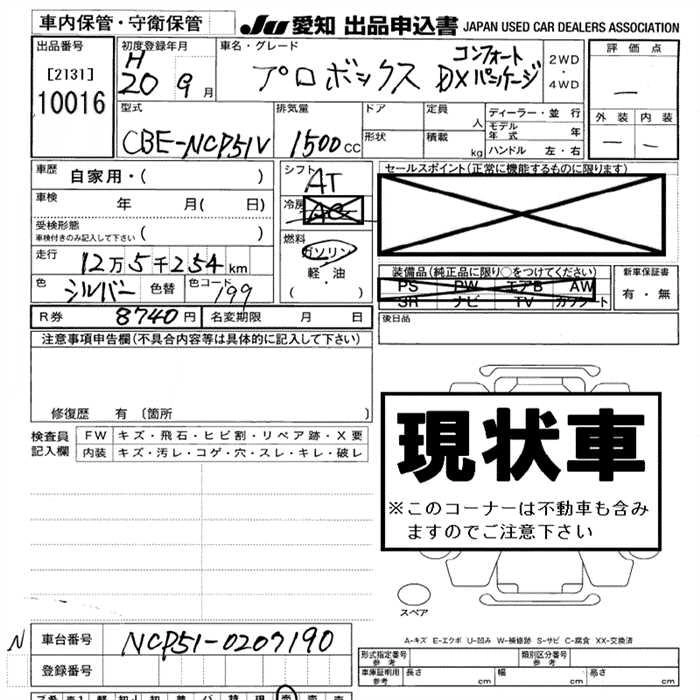 車内保管・守衛保管
JU 愛知 出品申込書 JAPAN USED CAR DEALERS ASSOCIATION
出品番号
[2131]
10016
初度登録年月
H 20 9月
車名・グレード
プロボックス コンフォート DXパッケージ
2WD・4WD
評価点
—
外装 内装
— —
型式
CBE-NCP51V
排気量
1500cc
ドア
形状
定員 人
積載 kg
ディーラー・並行
モデル年式 年
ハンドル 左・右
車歴 自家用・( )
車検 年 月( 日)
受検形態
車検付きのみ記入して下さい ( )
走行 12万5千254km
色 シルバー 色替 色コード 199
シフト AT
冷房 AC
燃料
ガソリン
軽・油
( )
セールスポイント(正常に機能するものに限ります)
装備品(純正品に限り○をつけてください)
PS PW エアB AW
SR ナビ TV カワシート
新車保証書
有・無
R券 8740円 名変期限 月 日
後日品
注意事項申告欄(不具合内容等は具体的に記入して下さい)
修復歴 有 〔箇所 〕
検査員記入欄
FW キズ・飛石・ヒビ割・リペア跡・X要
内装 キズ・汚レ・コゲ・穴・スレ・キレ・破レ
現状車
※このコーナーは不動車も含み
ますのでご注意下さい
スペア
A-キズ E-エクボ U-凹み W-補修跡 S-サビ C-腐食 XX-交換済
N 車台番号 NCP51-0207190
登録番号
形式指定番号 参考
類別区分番号 参考
車庫証明用 参考 長さ cm 幅 cm 高さ cm